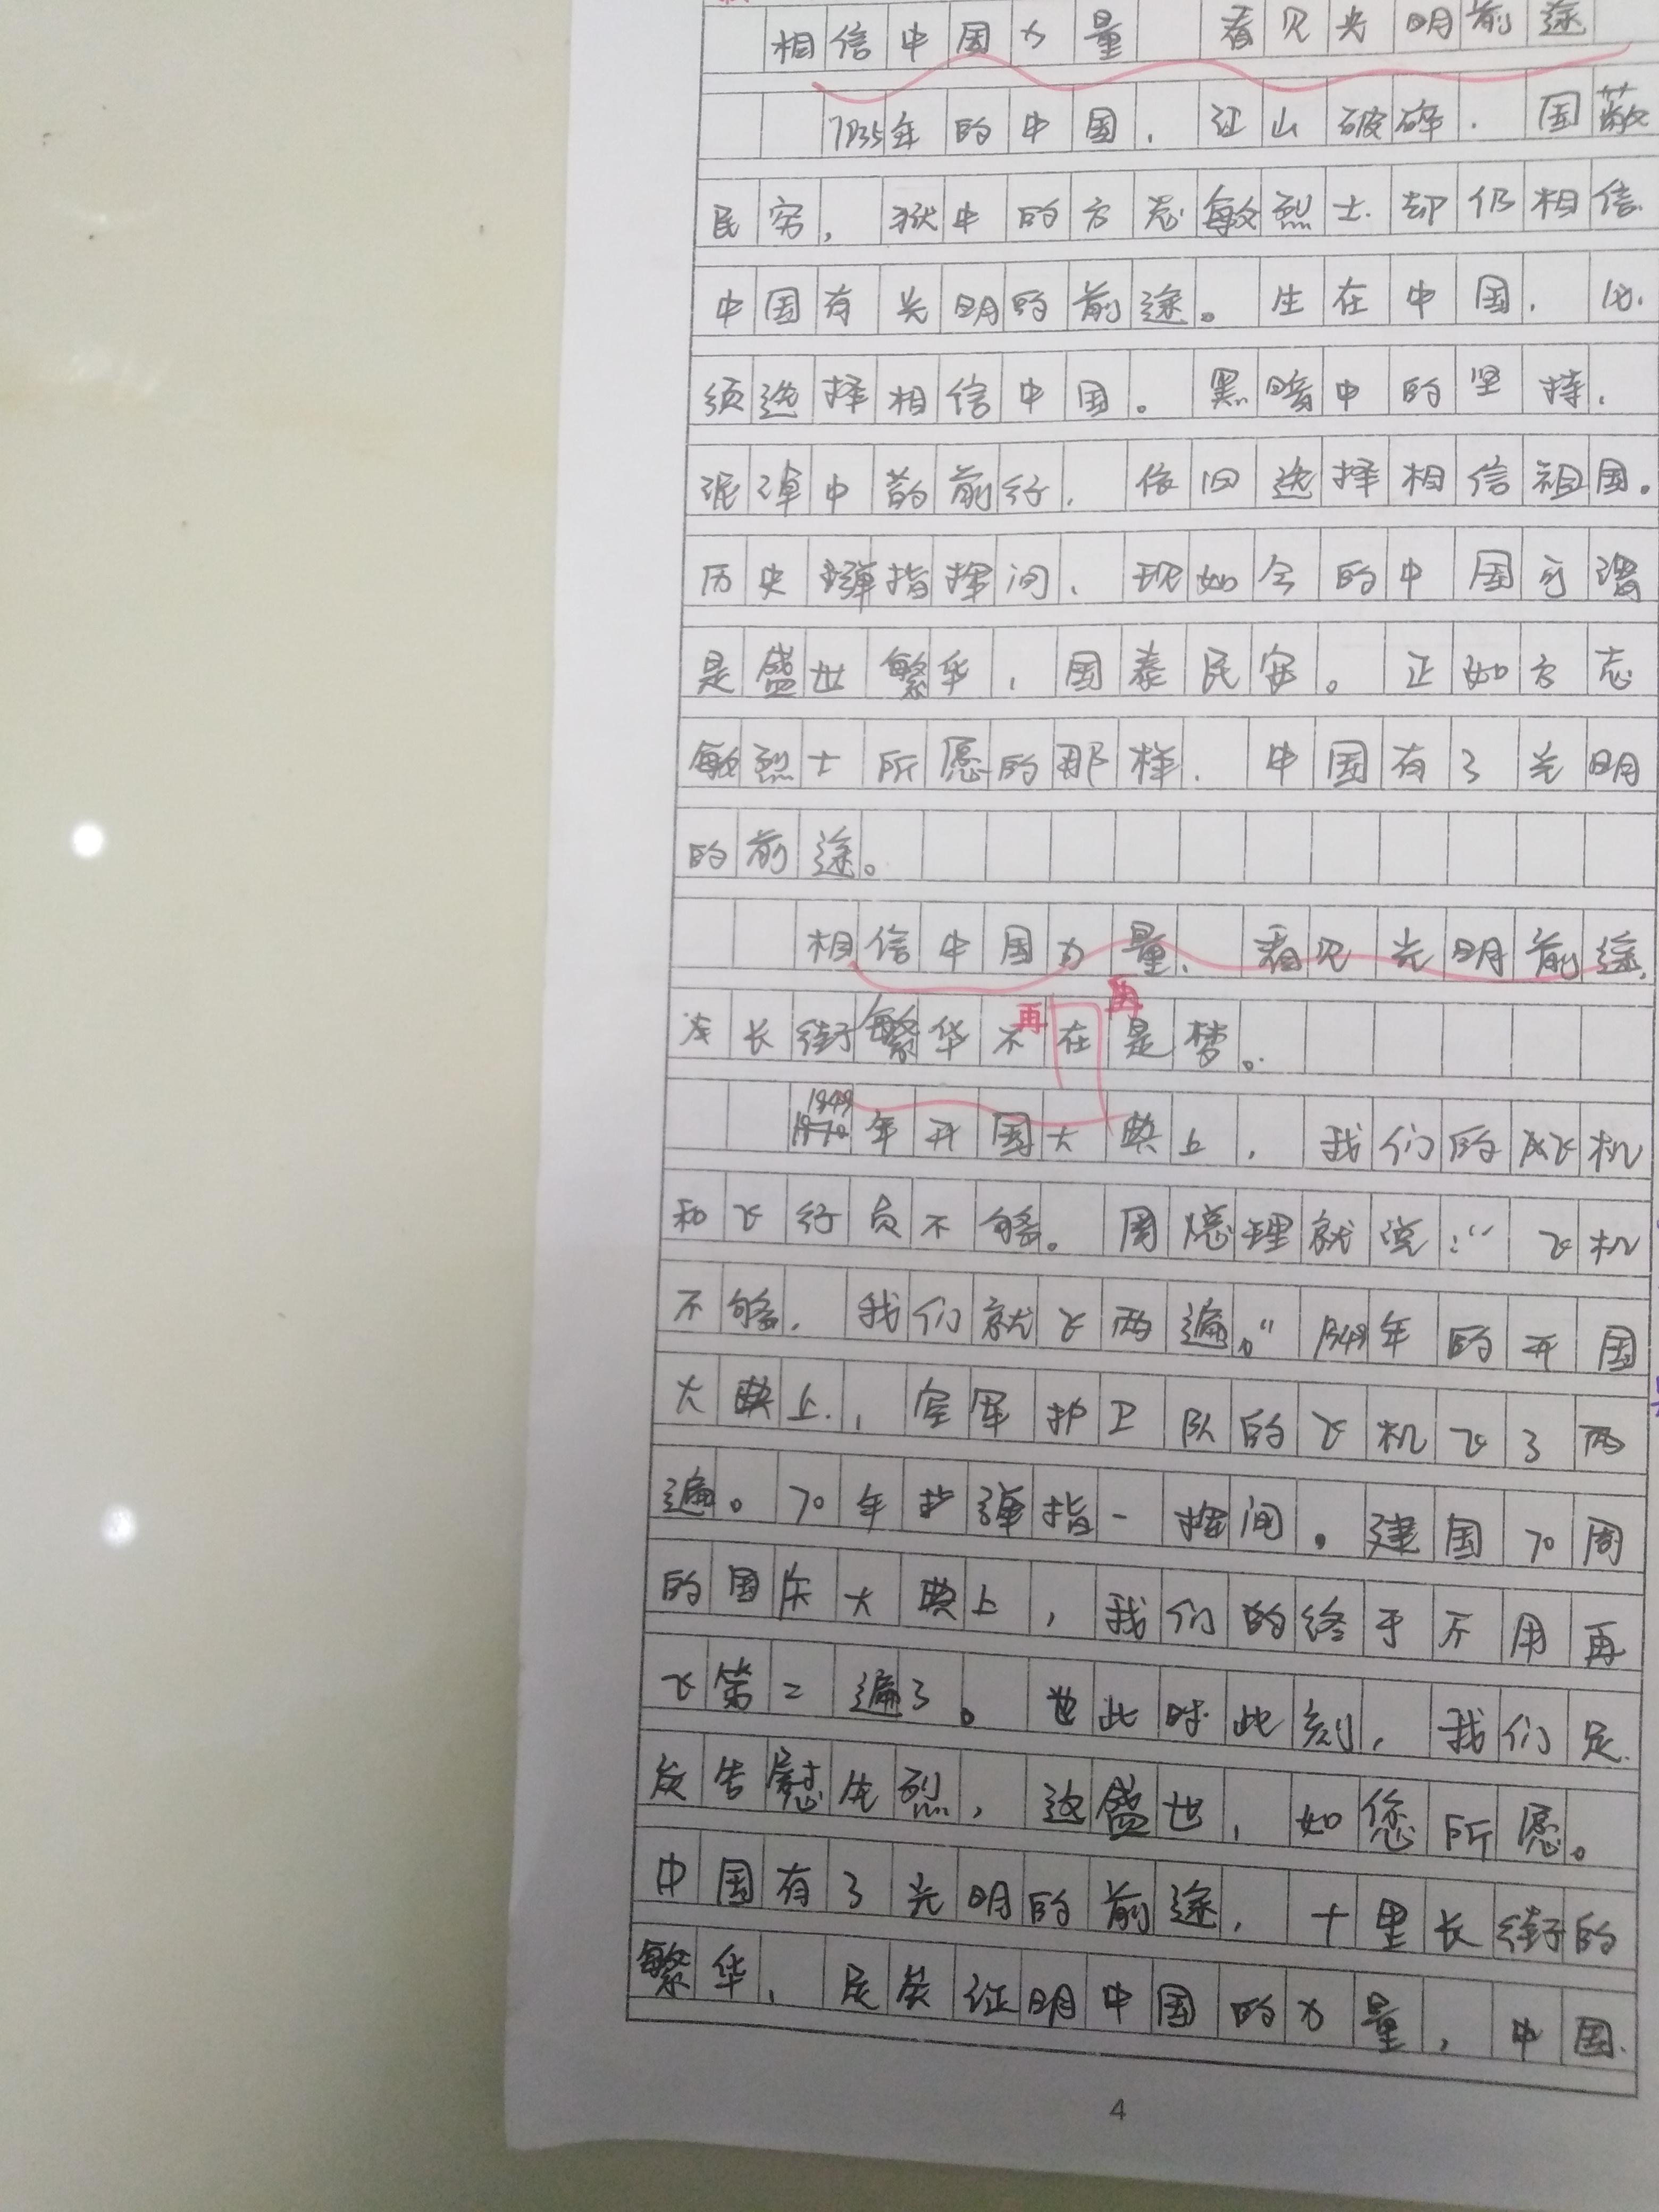 相信中国力量 看见光明前途
1935年的中国,江山破碎.国敝
民穷,狱中的方志敏烈士却仍相信
中国有光明的前途。生在中国,必
须选择相信中国。黑暗中的坚持,
泥潭中的前行,依旧选择相信祖国。
历史弹指挥间,现如今的中国可谓
是盛世繁华,国泰民安。正如方志
敏烈士所愿的那样,中国有了光明
的前途。
相信中国力量、看见光明前途,
长街繁华不在是梦。
再
再
1949
年开国大典上,我们的飞机
和飞行员不够。周总理就说:“飞机
不够,我们就飞两遍。”1949年的开国
大典上,空军护卫队的飞机飞了两
遍。70年弹指一挥间。建国70周
的国庆大典上,我们的终于不用再
飞第二遍了。此时此刻,我们足
矣告慰先烈,这盛世,如您所愿。
中国有了光明的前途,十里长街的
繁华,足矣证明中国的力量,中国
4